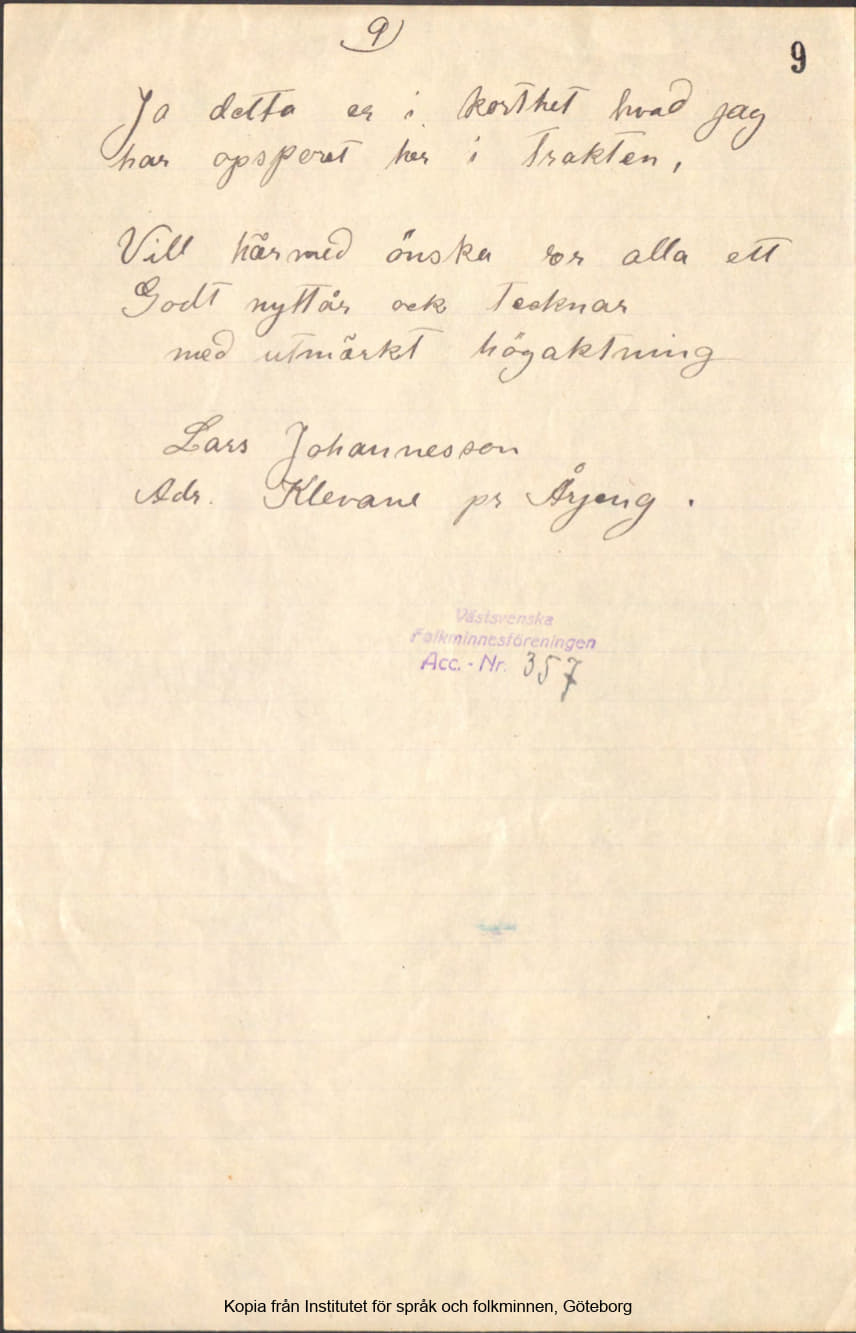 9)
9
Ja detta er i korthet hvad jag
har opsporet her i Trakten,
Vill härmed önska eder alla ett
Godt nyttår ock Tecknar
med utmärkt högaktning
Lars Johannesson
Adr. Klevane pr Årjeng.
Västsvenska
Folkminnesföreningen
Acc. - Nr. 357
Kopia från Institutet för språk och folkminnen, Göteborg